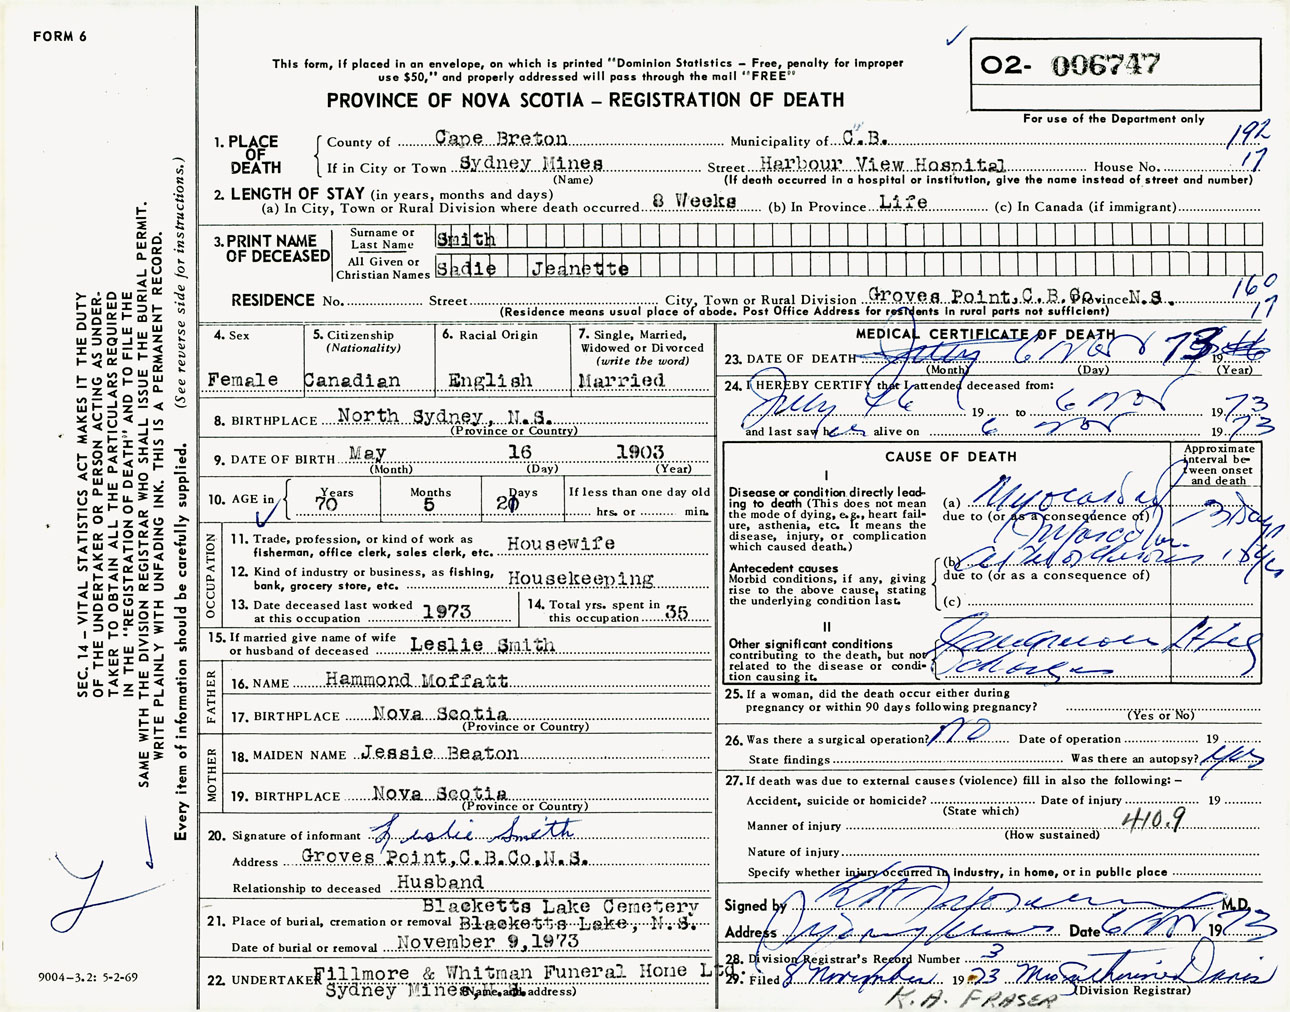 FORM 6
This form, if placed in an envelope, on which is printed "Dominion Statistics – Free, penalty for improper
use $50," and properly addressed will pass through the mail "FREE"
PROVINCE OF NOVA SCOTIA – REGISTRATION OF DEATH
O2- 006747
For use of the Department only
1. PLACE OF DEATH
County of Cape Breton Municipality of C.B. 192
If in City or Town Sydney Mines Street Harbour View Hospital House No. 17
(Name) (If death occurred in a hospital or institution, give the name instead of street and number)
2. LENGTH OF STAY (in years, months and days)
(a) In City, Town or Rural Division where death occurred 8 Weeks (b) In Province Life (c) In Canada (if immigrant)
3. PRINT NAME OF DECEASED
Surname or Last Name Smith
All Given or Christian Names Sadie Jeanette
RESIDENCE No. Street City, Town or Rural Division Groves Point, C.B.Co. Province N.S. 160
(Residence means usual place of abode. Post Office Address for residents in rural parts not sufficient) 17
4. Sex
Female
5. Citizenship
(Nationality)
Canadian
6. Racial Origin
English
7. Single, Married,
Widowed or Divorced
(write the word)
Married
8. BIRTHPLACE North Sydney, N.S.
(Province or Country)
9. DATE OF BIRTH May 16 1903
(Month) (Day) (Year)
10. AGE in
Years Months Days If less than one day old
70 5 20 hrs. or min.
OCCUPATION
11. Trade, profession, or kind of work as
fisherman, office clerk, sales clerk, etc. Housewife
12. Kind of industry or business, as fishing,
bank, grocery store, etc. Housekeeping
13. Date deceased last worked
at this occupation 1973
14. Total yrs. spent in
this occupation 35
15. If married give name of wife
or husband of deceased Leslie Smith
FATHER
16. NAME Hammond Moffatt
17. BIRTHPLACE Nova Scotia
(Province or Country)
MOTHER
18. MAIDEN NAME Jessie Beaton
19. BIRTHPLACE Nova Scotia
(Province or Country)
20. Signature of informant Leslie Smith
Address Groves Point, C.B.Co, N.S.
Relationship to deceased Husband
Blacketts Lake Cemetery
21. Place of burial, cremation or removal Blacketts Lake, N.S.
Date of burial or removal November 9, 1973
22. UNDERTAKER Fillmore & Whitman Funeral Home Ltd.
Sydney Mines, N.S. (Name and address)
MEDICAL CERTIFICATE OF DEATH
23. DATE OF DEATH 6 Nov 73 19
(Month) (Day) (Year)
24. I HEREBY CERTIFY that I attended deceased from:
July 19 to 6 Nov 1973
and last saw her alive on 6 Nov 1973
CAUSE OF DEATH
Approximate
interval be-
tween onset
and death
I
Disease or condition directly lead-
ing to death (This does not mean
the mode of dying, e.g., heart fail-
ure, asthenia, etc. It means the
disease, injury, or complication
which caused death.)
(a) Myocardial
due to (or as a consequence of) 3 Days
Antecedent causes
Morbid conditions, if any, giving
rise to the above cause, stating
the underlying condition last.
(b)
due to (or as a consequence of)
(c)
II
Other significant conditions
contributing to the death, but not
related to the disease or condi-
tion causing it.
25. If a woman, did the death occur either during
pregnancy or within 90 days following pregnancy?
(Yes or No)
26. Was there a surgical operation? NO Date of operation 19
State findings Was there an autopsy? yes
27. If death was due to external causes (violence) fill in also the following: –
Accident, suicide or homicide? Date of injury 19
(State which)
Manner of injury 410.9
(How sustained)
Nature of injury
Specify whether injury occurred in industry, in home, or in public place
Signed by M.D.
Address Sydney Mines Date 6 Nov 1973
28. Division Registrar's Record Number 3
29. Filed 8 November 1973 Mrs Catherine Davis
(Division Registrar)
K. A. FRASER
SEC. 14 – VITAL STATISTICS ACT MAKES IT THE DUTY
OF THE UNDERTAKER OR PERSON ACTING AS UNDER-
TAKER TO OBTAIN ALL THE PARTICULARS REQUIRED
IN THE "REGISTRATION OF DEATH" AND TO FILE THE
SAME WITH THE DIVISION REGISTRAR WHO SHALL ISSUE THE BURIAL PERMIT.
WRITE PLAINLY WITH UNFADING INK. THIS IS A PERMANENT RECORD.
Every item of information should be carefully supplied. (See reverse side for instructions.)
9004-3.2: 5-2-69